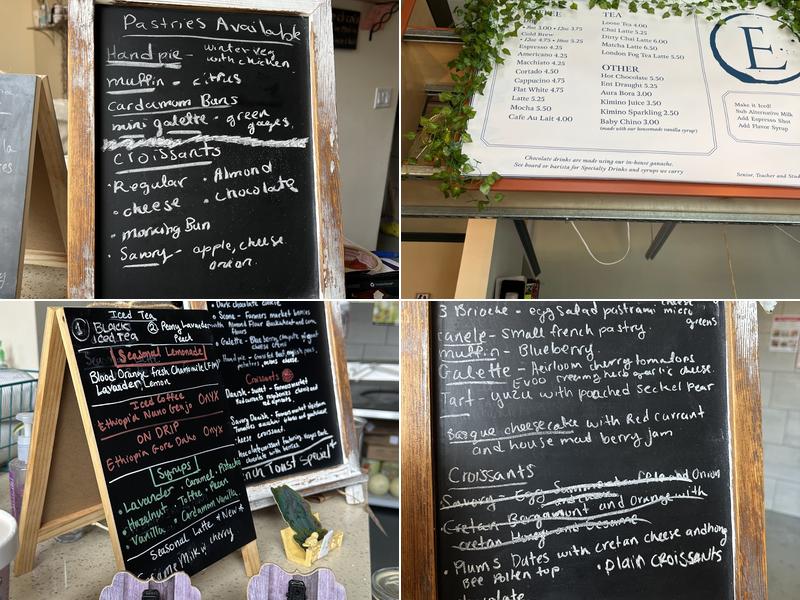 Pastries Available
Hand pie - winter veg
with chicken
muffin - citrus
cardamom Buns
mini galette - green
gages.
Croissants
• Regular • Almond
• cheese • chocolate
• morning Bun
• Savory - apple, cheese
onion.
TEA
Cold Brew
Espresso 4.25
Americano 4.25
Macchiato 4.25
Cortado 4.50
Cappucino 4.75
Flat White 4.75
Latte 5.25
Mocha 5.50
Cafe Au Lait 4.00
Loose Tea 4.00
Chai Latte 5.25
Dirty Chai Latte 6.00
Matcha Latte 6.50
London Fog Tea Latte 5.50
OTHER
Hot Chocolate 5.50
Ent Draught 5.25
Aura Bora 3.00
Kimino Juice 3.50
Kimino Sparkling 2.50
Baby Chino 3.00
(made with our housemade vanilla syrup)
E
Make it Iced!
Sub Alternative Milk
Add Espresso Shot
Add Flavor Syrup
Chocolate drinks are made using our in-house ganache.
See board or barista for Specialty Drinks and syrups we carry
Senior, Teacher and
Iced Tea
① BLACK ICED TEA ② Peony Lavender with Peach
Seasonal Lemonade
Blood Orange fresh Chamomile
Lavander, Lemon
Iced Coffee
Ethiopia Nano Genjo ONYX
ON DRIP
Ethiopia Gora Dako ONYX
Syrups
• Lavender • Caramel • Pistachio
• Hazelnut • Toffee • Pecan
• Vanilla • Cardamom Vanilla
Seasonal Latte * New *
Milk w/ cherry
• Dark chocolate cookie
• Scone - Farmers market berries
with Almond Flour Buckwheat and corn
flours
• Galette - Blueberry
cheese
Croissants
Danish - sweet - Farmers market
Savory Danish - Farmers market
cheese croissant.
chocolate with berries
French Toast Special
3 Brioche - egg salad pastrami micro
greens
canele - small french pastry.
muffin - Blueberry
Galette - Heirloom cherry tomatoes
EVOO creamy herb garlic cheese.
Tart - yuzu with poached seckel pear
Basque cheesecake with Red currant
and house mad berry jam
Croissants
Savory - Egg and Onion
• Cretan Bergamont and Orange with
cretan Honey and Sesame
• Plums Dates with cretan cheese and hong
Bee Pollen top • plain croissants
chocolate